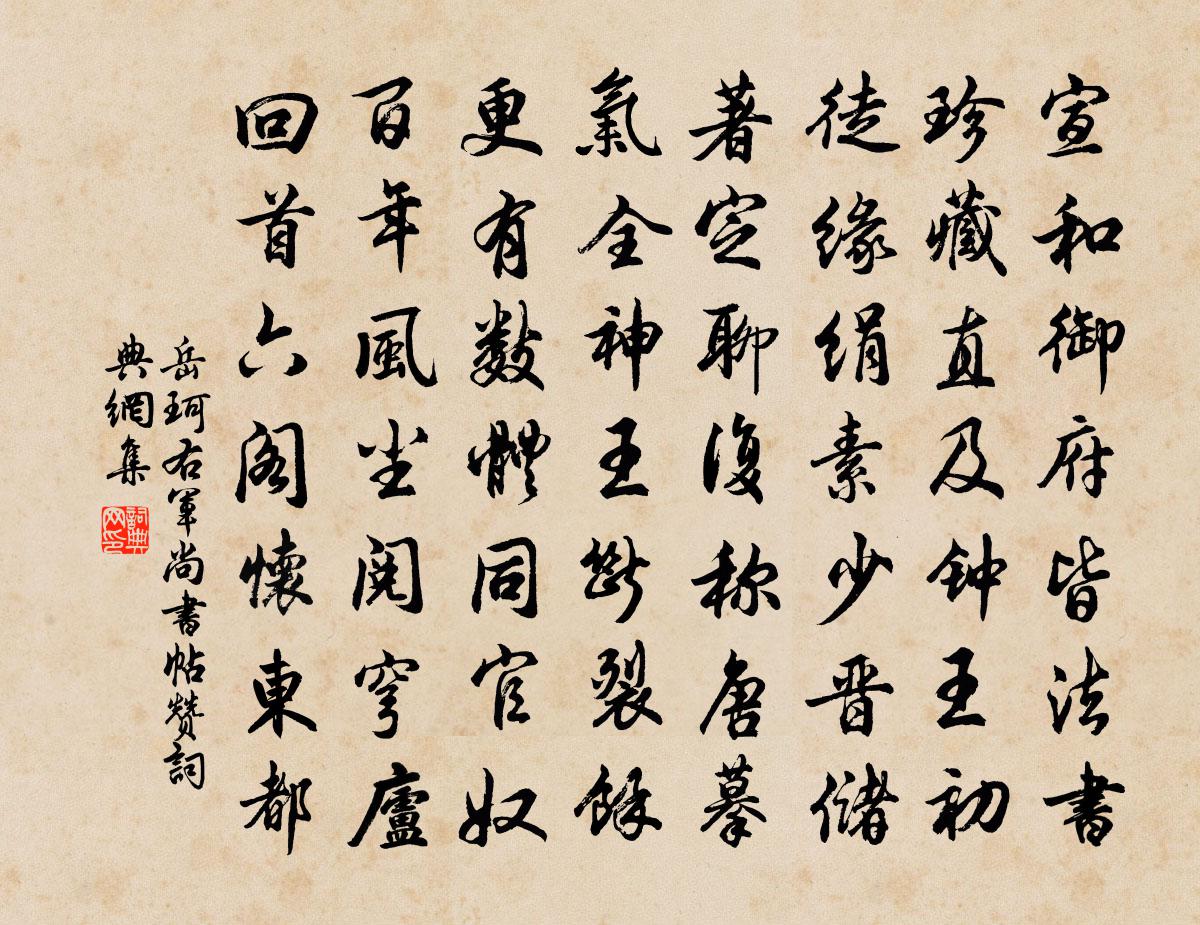 宣和御府皆法書
珍藏直及钟王初
徒緣絹素少晋儲
著定聊復称唐摹
氣全神王斷裂餘
更有數體同官奴
百年風尘閱穹廬
回首六阁懷東都
岳珂右軍尚書帖贊詞
典網集
詞典网印